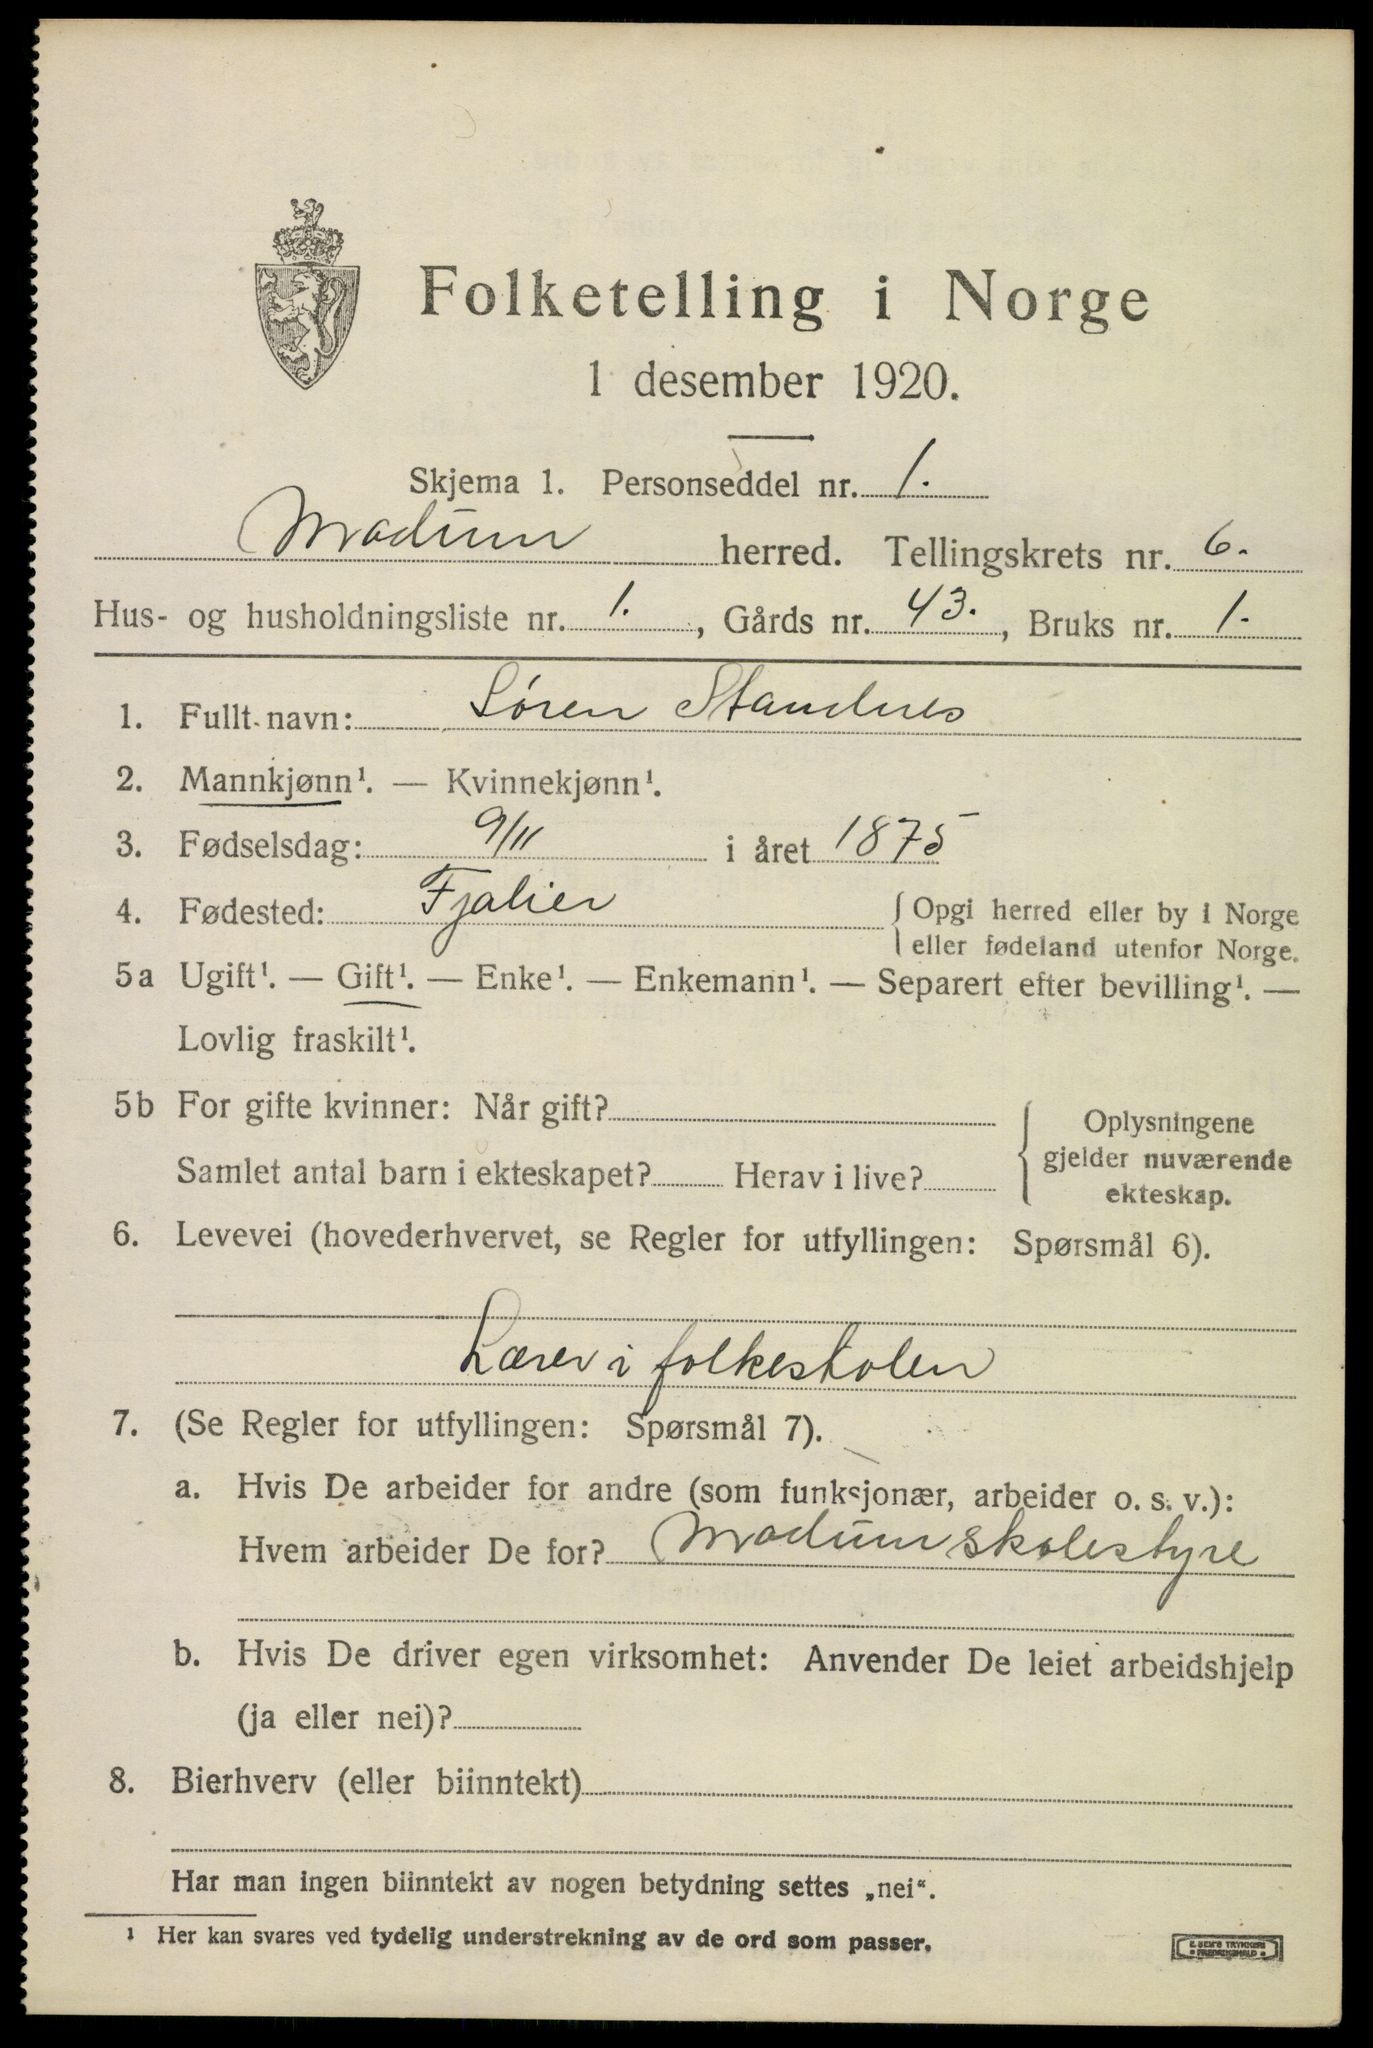 Folketelling i Norge
1 desember 1920.
Skjema 1. Personseddel nr. 1.
Modum herred. Tellingskrets nr. 6.
Hus- og husholdningsliste nr. 1., Gårds nr. 43., Bruks nr. 1.
1. Fullt navn: Søren Standnes
2. Mannkjønn¹. — Kvinnekjønn¹.
3. Fødselsdag: 9/11 i året 1875
4. Fødested: Fjalier { Opgi herred eller by i Norge
eller fødeland utenfor Norge.
5a Ugift¹. — Gift¹. — Enke¹. — Enkemann¹. — Separert efter bevilling¹. —
Lovlig fraskilt¹.
5b For gifte kvinner: Når gift?
Samlet antal barn i ekteskapet? Herav i live?
{ Oplysningene
gjelder nuværende
ekteskap.
6. Levevei (hovederhvervet, se Regler for utfyllingen: Spørsmål 6).
Lærer i folkeskolen
7. (Se Regler for utfyllingen: Spørsmål 7).
a. Hvis De arbeider for andre (som funksjonær, arbeider o. s. v.):
Hvem arbeider De for? Modum skolestyre
b. Hvis De driver egen virksomhet: Anvender De leiet arbeidshjelp
(ja eller nei)?
8. Bierhverv (eller biinntekt)
Har man ingen biinntekt av nogen betydning settes „nei“.
¹ Her kan svares ved tydelig understrekning av de ord som passer.
E. SEM'S TRYKKERI
• FREDRIKSHALD •